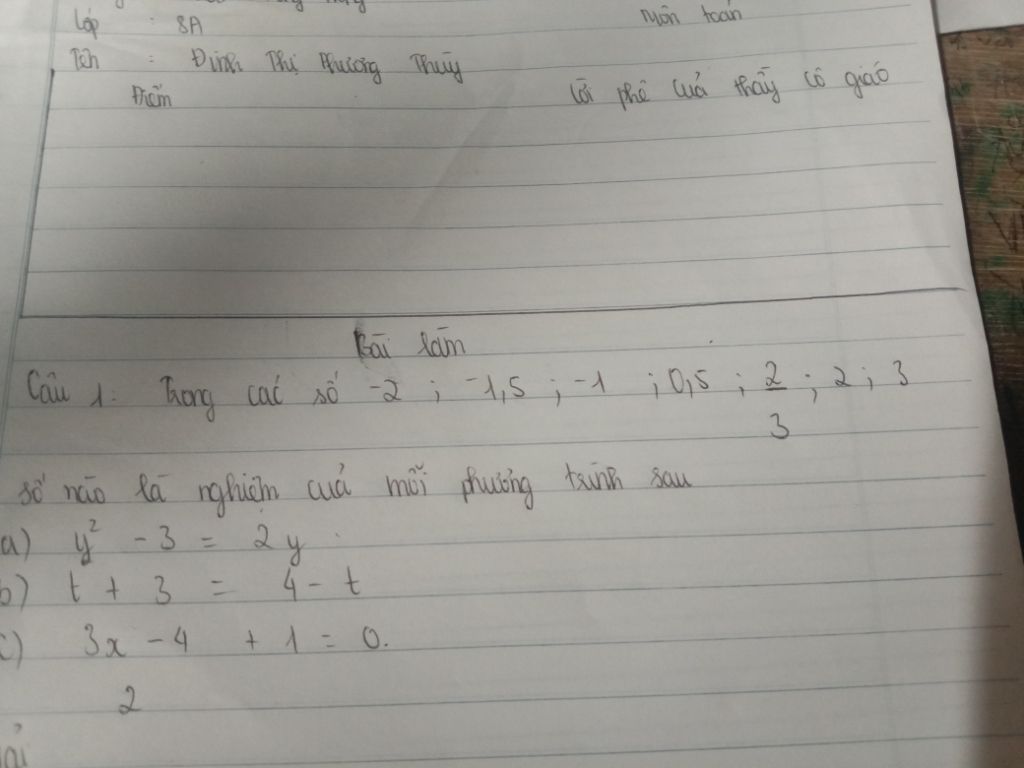 Lớp : 8A
Môn toán
Tên : Đinh Thị Phương Thùy
Điểm
Lời phê của thầy cô giáo
Bài làm
Câu 1: Trong các số -2 ; -1,5 ; -1 ; 0,5 ; 2/3 ; 2 ; 3
số nào là nghiệm của mỗi phương trình sau
a) y² - 3 = 2y
b) t + 3 = 4 - t
c) 3x - 4 + 1 = 0.
2